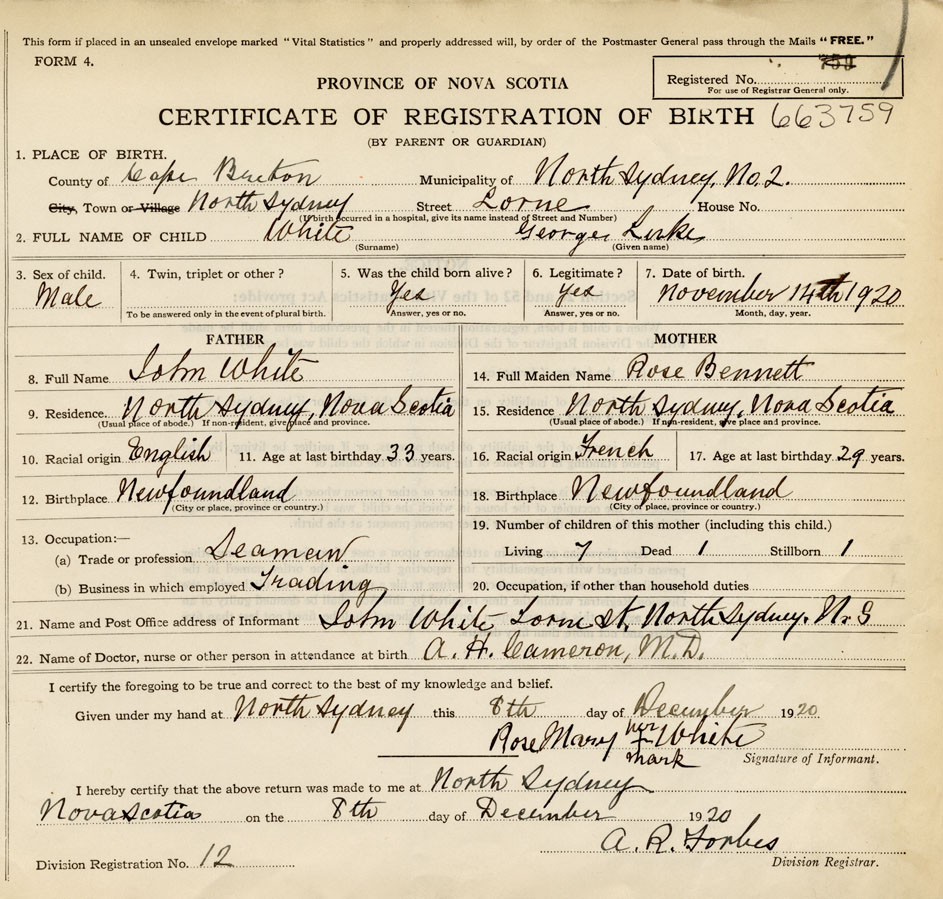 This form if placed in an unsealed envelope marked “Vital Statistics” and properly addressed will, by order of the Postmaster General pass through the Mails “FREE.”
FORM 4.
Registered No. 759
For use of Registrar General only.
PROVINCE OF NOVA SCOTIA
CERTIFICATE OF REGISTRATION OF BIRTH 663759
(BY PARENT OR GUARDIAN)
1. PLACE OF BIRTH.
County of Cape Breton Municipality of North Sydney, No. 2.
City, Town or Village North Sydney Street Lorne House No.
(If birth occurred in a hospital, give its name instead of Street and Number)
2. FULL NAME OF CHILD White George Luke
(Surname) (Given name)
3. Sex of child. 4. Twin, triplet or other? 5. Was the child born alive? 6. Legitimate? 7. Date of birth.
Male Yes Yes November 14th 1920
To be answered only in the event of plural birth. Answer, yes or no. Answer, yes or no. Month, day, year.
FATHER
8. Full Name John White
9. Residence. North Sydney, Nova Scotia
(Usual place of abode.) If non-resident, give place and province.
10. Racial origin English 11. Age at last birthday 33 years.
12. Birthplace Newfoundland
(City or place, province or country.)
13. Occupation:—
(a) Trade or profession Seaman
(b) Business in which employed Trading
MOTHER
14. Full Maiden Name Rose Bennett
15. Residence North Sydney, Nova Scotia
(Usual place of abode.) If non-resident, give place and province.
16. Racial origin French 17. Age at last birthday 29 years.
18. Birthplace Newfoundland
(City or place, province or country.)
19. Number of children of this mother (including this child.)
Living 7 Dead 1 Stillborn 1
20. Occupation, if other than household duties
21. Name and Post Office address of Informant John White Lorne St, North Sydney. N.S
22. Name of Doctor, nurse or other person in attendance at birth A. H. Cameron, M.D.
I certify the foregoing to be true and correct to the best of my knowledge and belief.
Given under my hand at North Sydney this 8th day of December 1920
Rose Mary her X mark White
Signature of Informant.
I hereby certify that the above return was made to me at North Sydney
Nova Scotia on the 8th day of December 1920
A. R. Forbes
Division Registration No. 12 Division Registrar.